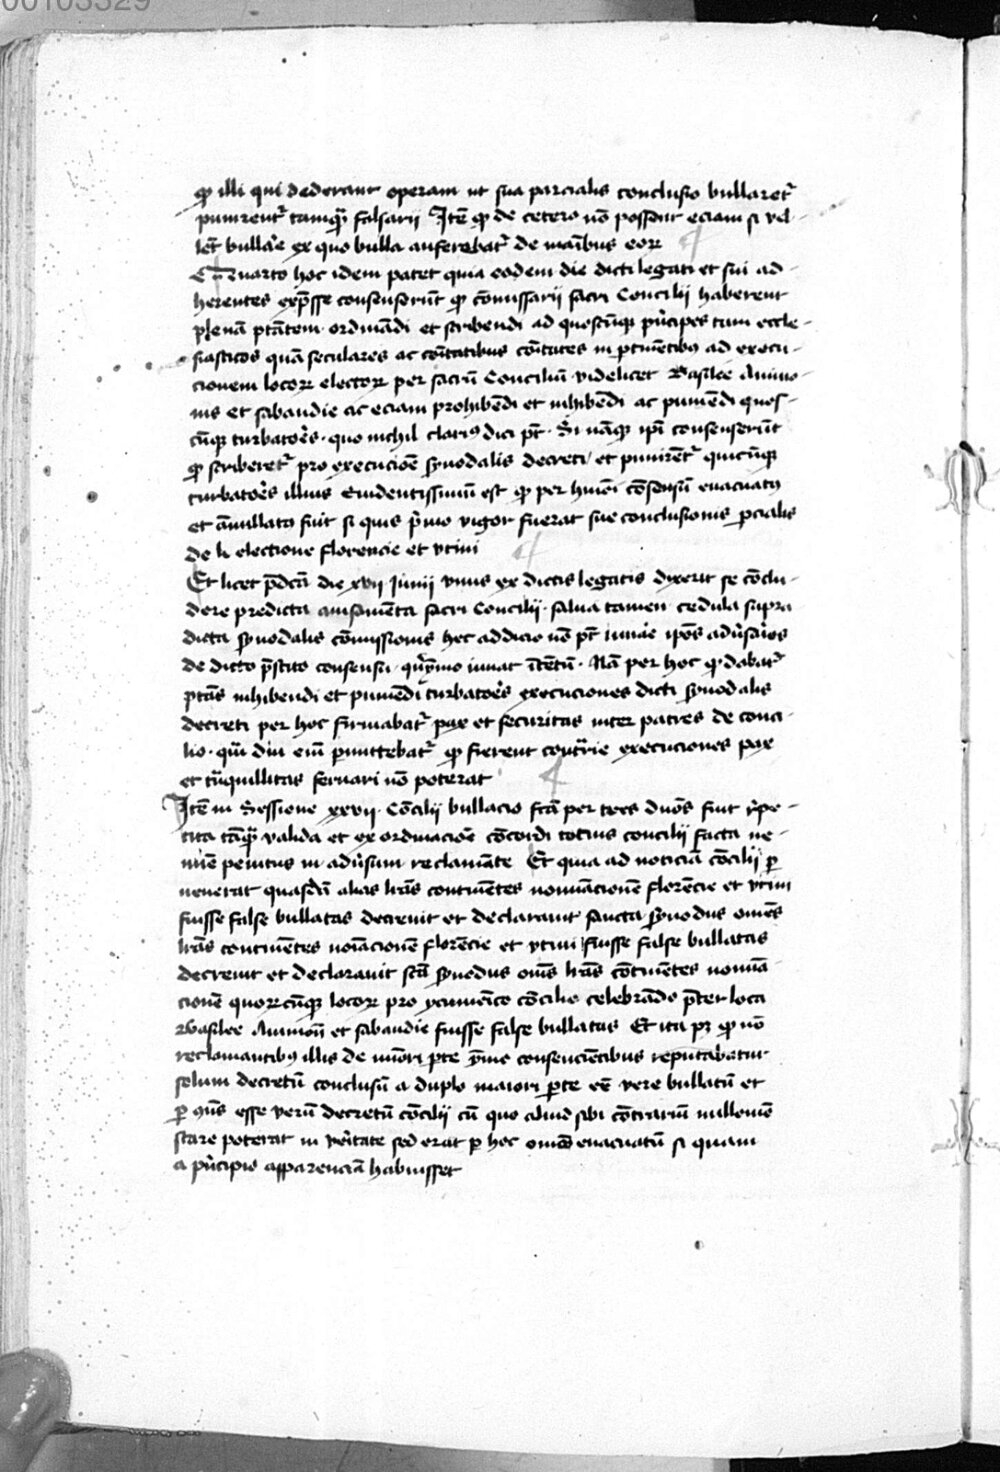 00103329
ꝙ illi qui dederant operam ut sua parcialis conclusio bullaret᷑
punirent᷑ tamqȝ falsarii Itē ꝙ de cetero nō possent eciam si vel-
lēt bullar̄e ex quo bulla auferebat᷑ de manibus eoꝝ
Quarto hoc idem patet quia eodem die dicti legati et sui ad-
herentes exp̄sse consenserūt ꝙ cōmissarii sacri Concilii haberent
plenā ptātem ordinādi et scribendi ad quoscūqȝ pͥncipes tam eccle-
siasticos quā seculares ac cōitatibus cōitates in ꝑtinētibꝰ ad execu-
cionem locoꝝ electoꝝ per sacrū Conciliū videlicet Basilee Avinio-
nis et sabaudie ac eciam prohibēdi et inhibēdi ac puniēdi quos-
cūqȝ turbator̄es quo nichil clariꝰ dici pt̄ Si nāqȝ ip̄i consenserūt
ꝙ scriberet᷑ pro execucioē synodalis decreti et punirēt᷑ quicūqȝ
turbator̄es illius evidentissimū est ꝙ per hm̄oi cōsensū evacuatꝰ
et ānullatꝰ fuit si quis pͥmo vigor fuerat sue conclusionis ꝑcialis
de electione florencie et vtini
Et licet p̄dc̄a die xvii Junii vnus ex dictis legatis dixerit se cōclu-
dere predicta avisamēta sacri Concilii salva tamen cedula supra
dicta synodalis cōmissionis hec addicio nō pt̄ iuvar̄e ip̄os adv̄sar̄ios
de dicto p̄stito consensu qͥnymo iuvat ītētū Nā per hoc ꝙ dabat᷑
ptās inhibendi et puniēdi turbator̄es execuciones dicti synodalis
decreti per hoc firmabat᷑ pax et securitas inter patres de conci-
lio qm̄ diu eīm ꝑmittebat᷑ ꝙ fierent cont̄rie execuciones pax
et tͣnquillitas servari nō poterat
Itē in Sessione xxvii Cōcilii bullacio fc̄a per tres duōs fuit rͥpe-
tita tāqȝ valida et ex ordinacioē cōcordi totius concilii facta ne-
mīe penitus in adv̄sum reclamāte Et quia ad noticiā cōcilii ꝑ
venerat quasdā alias lr̄as continētes nominacionē florēcie et vtini
fuisse false bullatas decrevit et declaravit sancta synodus omēs
lr̄as continētes noīacionē florēcie et vtini fuisse false bullatas
decrevit et declaravit scā synodus om̄s lr̄as cōtinētes nominā
cionē quoꝝcūqȝ locoꝝ pro ycumēico cōcilio celebrādo p̄ter loca
Basilee Avinioñ et sabaudie fuisse false bullatas Et ita pȝ ꝙ nō
reclamantibꝰ illis de mīori ꝑte ymo consenciētibus reputabatur
solum decretū conclusū a duplo maiori ꝑte eē vere bullatū et
ꝑ ꝯn̄s esse verū decretū cōcilii cū quo aliud sibi cōtrariū nullomō
stare poterat in v̄itate sed erat ꝑ hoc omnīo evacuatū si quam
a pͥncipio apparenciā habuisset